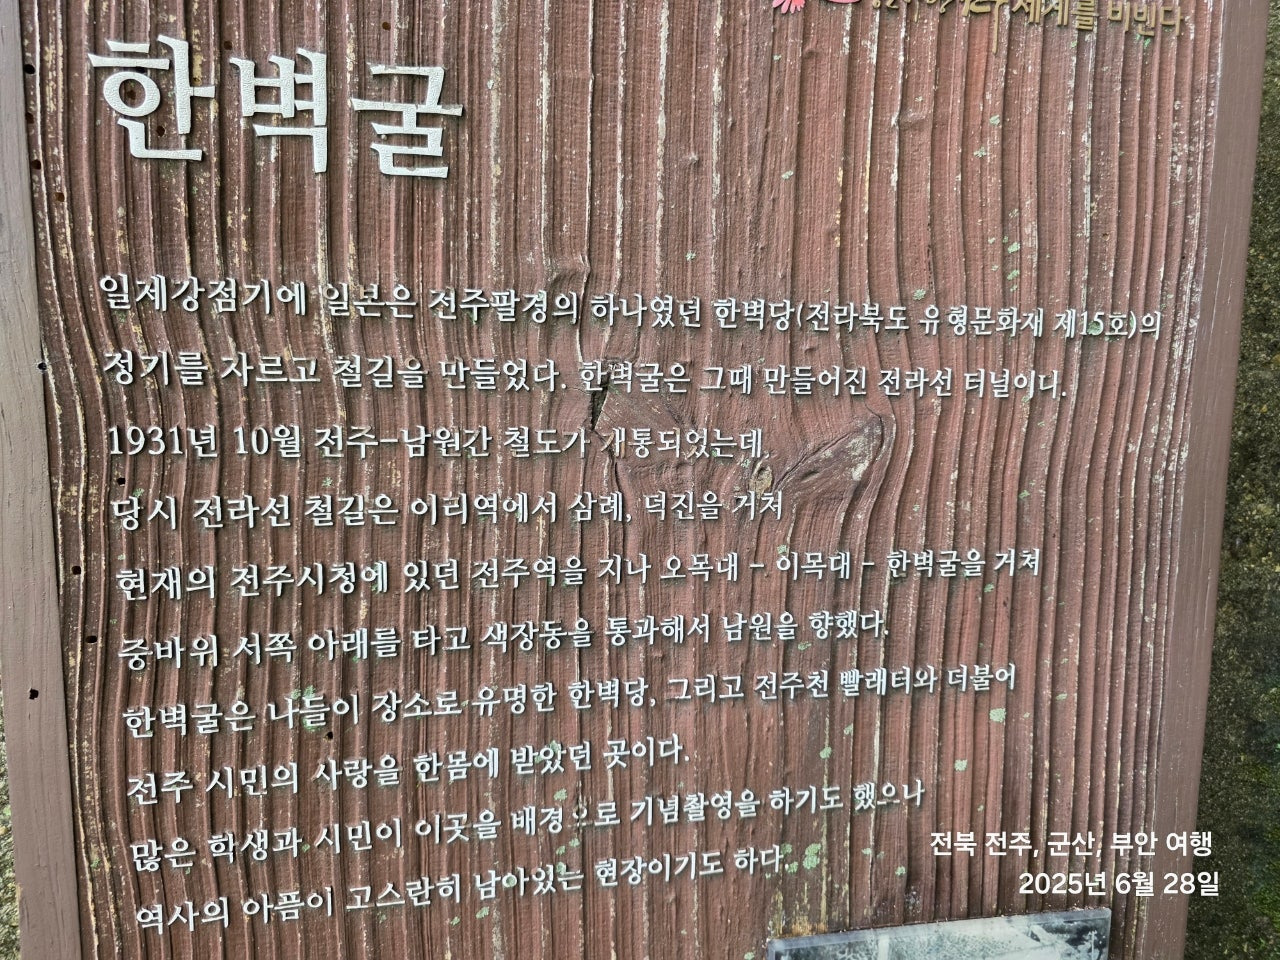 세계를 비빈다
한벽굴
일제강점기에 일본은 전주팔경의 하나였던 한벽당(전라북도 유형문화재 제15호)의
정기를 자르고 철길을 만들었다. 한벽굴은 그때 만들어진 전라선 터널이다.
1931년 10월 전주-남원간 철도가 개통되었는데,
당시 전라선 철길은 이리역에서 삼례, 덕진을 거쳐
현재의 전주시청에 있던 전주역을 지나 오목대 - 이목대 - 한벽굴을 거쳐
중바위 서쪽 아래를 타고 색장동을 통과해서 남원을 향했다.
한벽굴은 나들이 장소로 유명한 한벽당, 그리고 전주천 빨래터와 더불어
전주 시민의 사랑을 한몸에 받았던 곳이다.
많은 학생과 시민이 이곳을 배경으로 기념촬영을 하기도 했으나
역사의 아픔이 고스란히 남아있는 현장이기도 하다.
전북 전주, 군산, 부안 여행
2025년 6월 28일